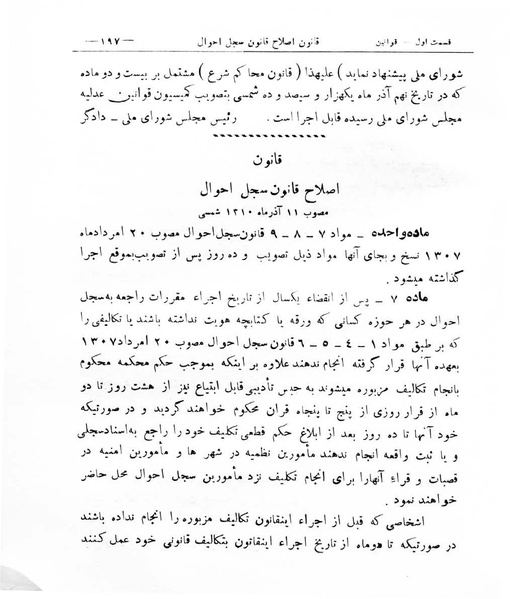 قسمت اول — قوانین
قانون اصلاح قانون سجل احوال
— ۱۹۷ —
شورای ملی پیشنهاد نماید ) علیهذا ( قانون محاکم شرع ) مشتمل بر بیست و دو ماده
که در تاریخ نهم آذر ماه یکهزار و سیصد و ده شمسی بتصویب کمیسیون قوانین عدلیه
مجلس شورای ملی رسیده قابل اجرا است . رئیس مجلس شورای ملی ـ دادگر
قانون
اصلاح قانون سجل احوال
مصوب ۱۱ آذرماه ۱۳۱۰ شمسی
ماده واحده ـ مواد ۷ ـ ۸ ـ ۹ قانون سجل احوال مصوب ۲۰ امردادماه
۱۳۰۷ نسخ و بجای آنها مواد ذیل تصویب و ده روز پس از تصویب بموقع اجرا
گذاشته میشود .
ماده ۷ ـ پس از انقضاء یکسال از تاریخ اجراء مقررات راجعه به سجل
احوال در هر حوزه کسانی که ورقه یا کتابچه هویت نداشته باشند یا تکالیفی را
که بر طبق مواد ۱ ـ ۴ ـ ۵ ـ ۶ قانون سجل احوال مصوب ۲۰ امرداد ۱۳۰۷
بعهده آنها قرار گرفته انجام ندهند علاوه بر اینکه بموجب حکم محکمه محکوم
بانجام تکالیف مزبوره میشوند به حبس تأدیبی قابل ابتیاع نیز از هشت روز تا دو
ماه از قرار روزی از پنج تا پنجاه قران محکوم خواهند گردید و در صورتیکه
خود آنها تا ده روز بعد از ابلاغ حکم قطعی تکلیف خود را راجع به اسناد سجلی
و یا ثبت واقعه انجام ندهند مأمورین نظمیه در شهر ها و مأمورین امنیه در
قصبات و قراء آنها را برای انجام تکلیف نزد مأمورین سجل احوال محل حاضر
خواهند نمود .
اشخاصی که قبل از اجراء اینقانون تکالیف مزبوره را انجام نداده باشند
در صورتیکه تا دوماه از تاریخ اجراء اینقانون بتکالیف قانونی خود عمل کنند